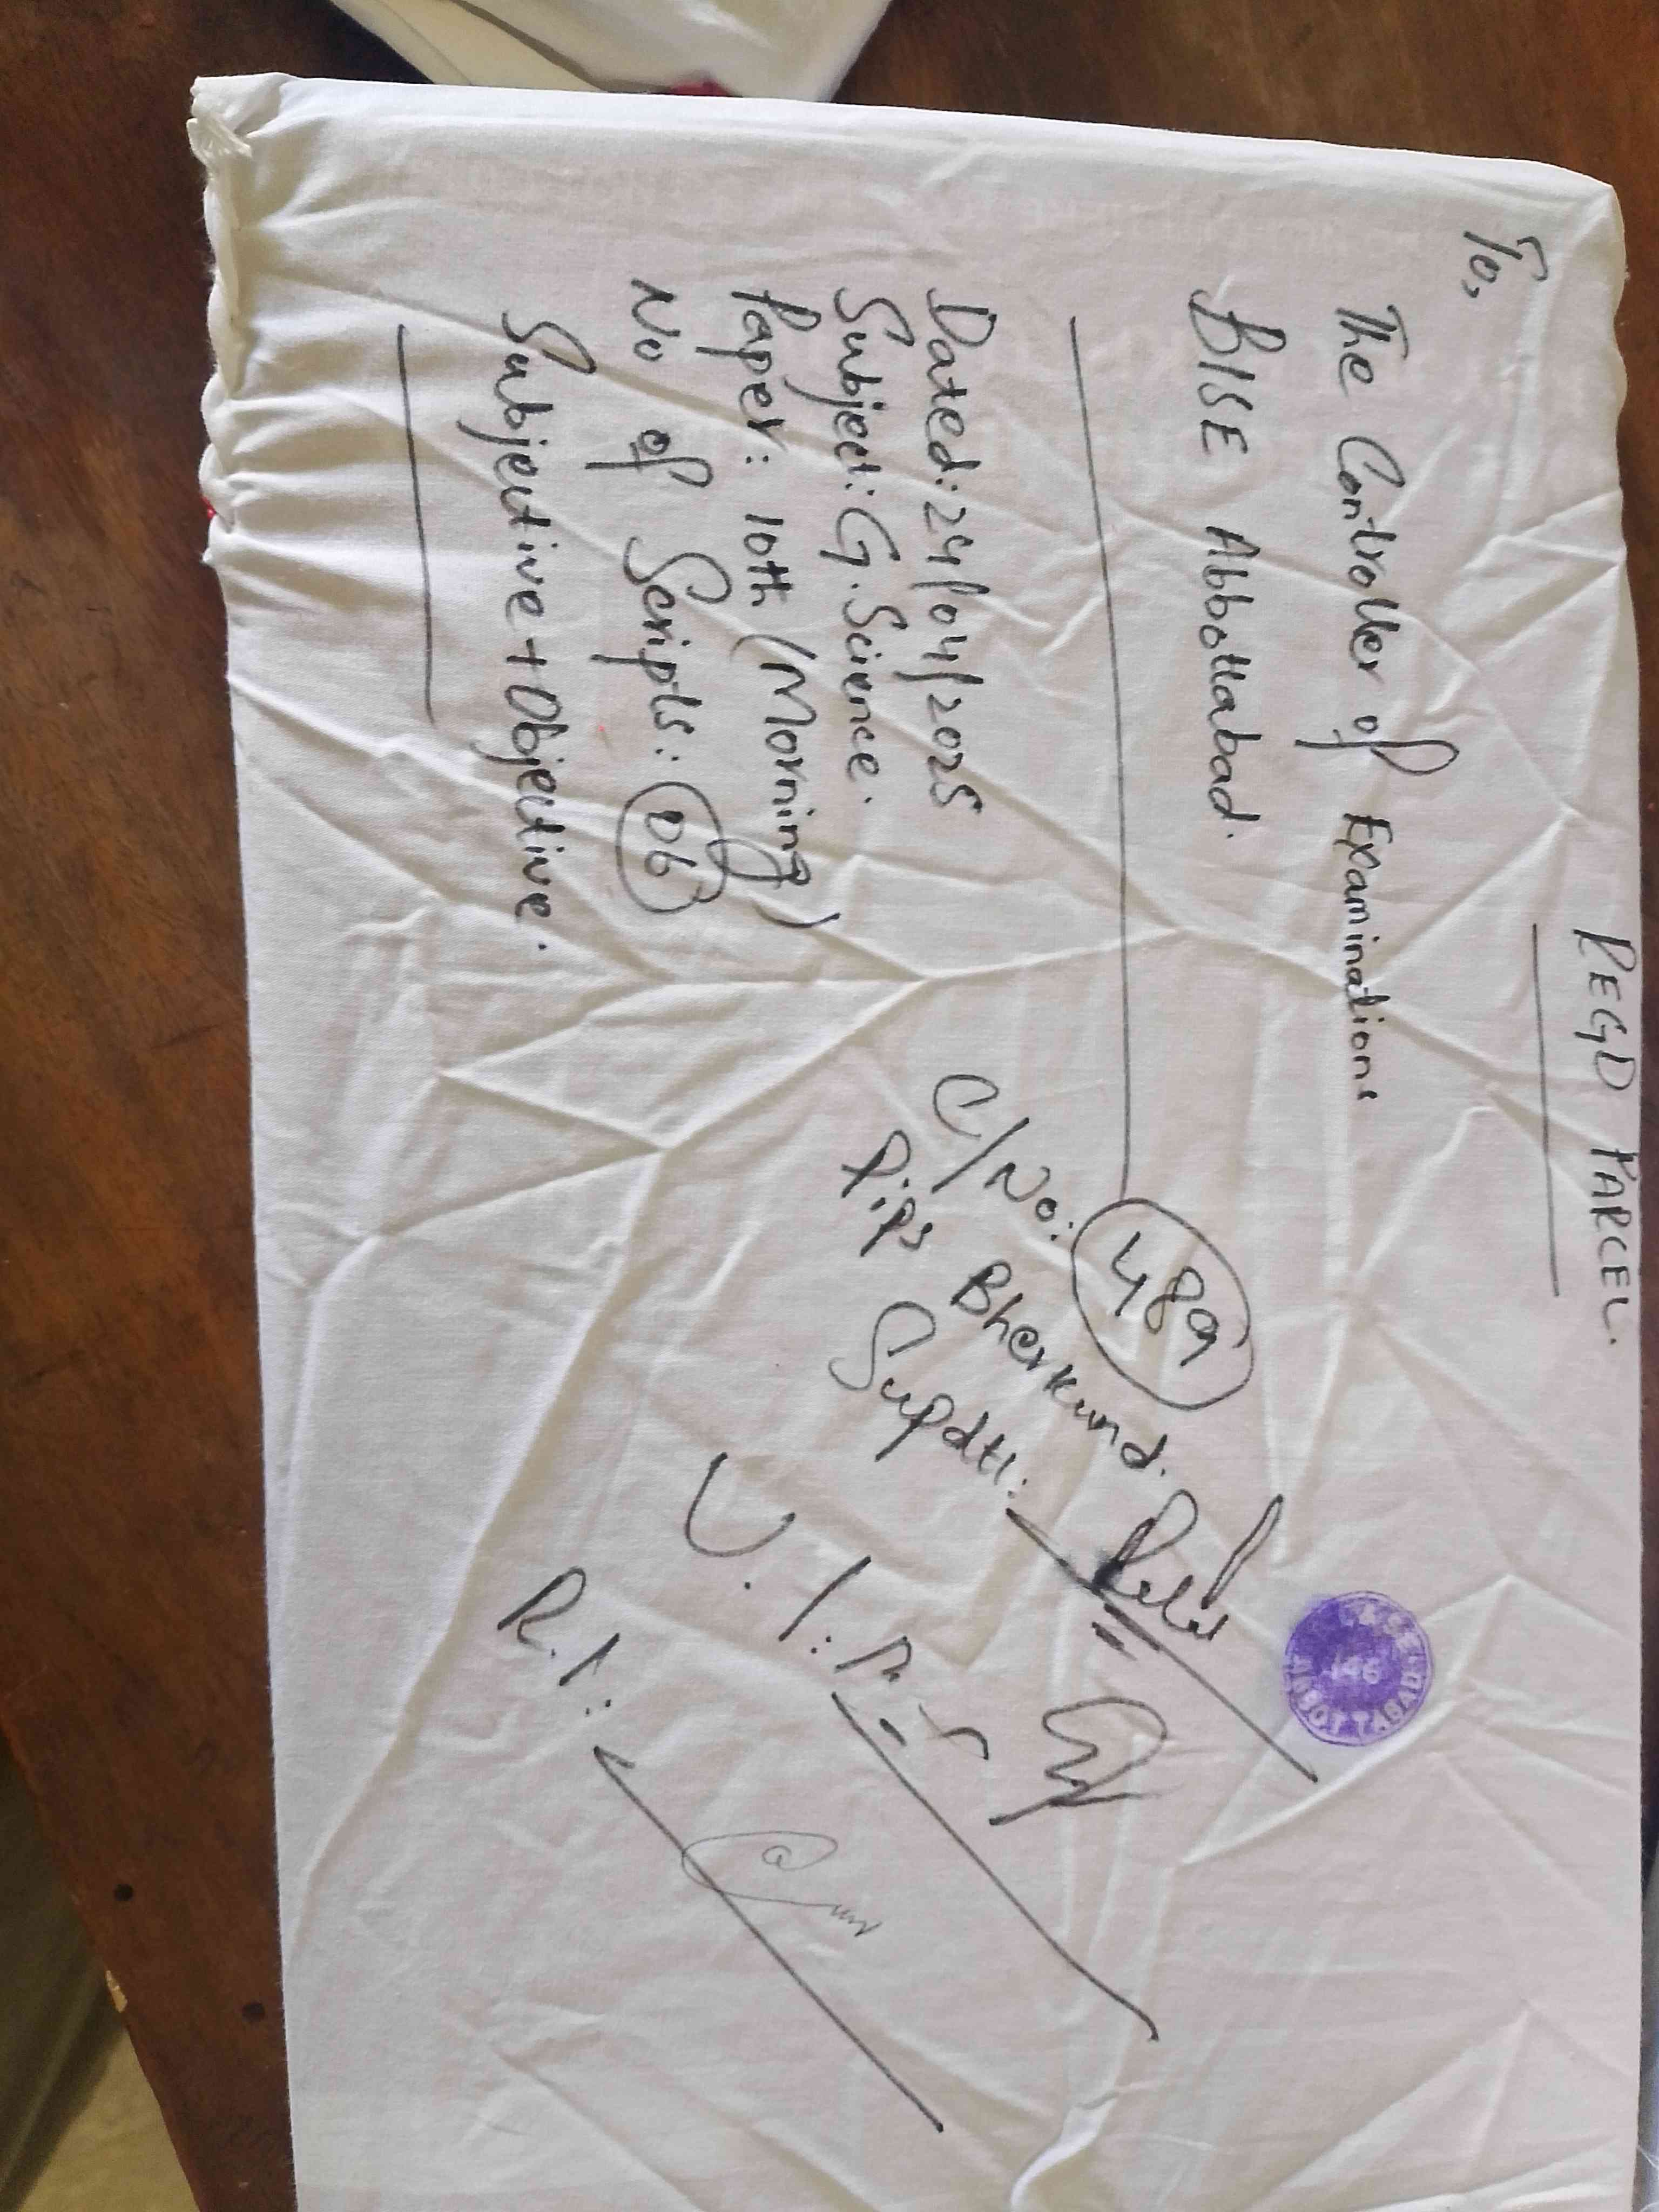 REGD PARCEL.
To,
The Controller of Examinations
BISE Abbottabad.
Dated: 24/04/2025
Subject: G. Science.
Paper: 10th (Morning)
No of Scripts: 06
Subjective + Objective.
C/No: 489
Pips Bherkund.
Supdtt:
R.I:
146
ABBOTTABAD